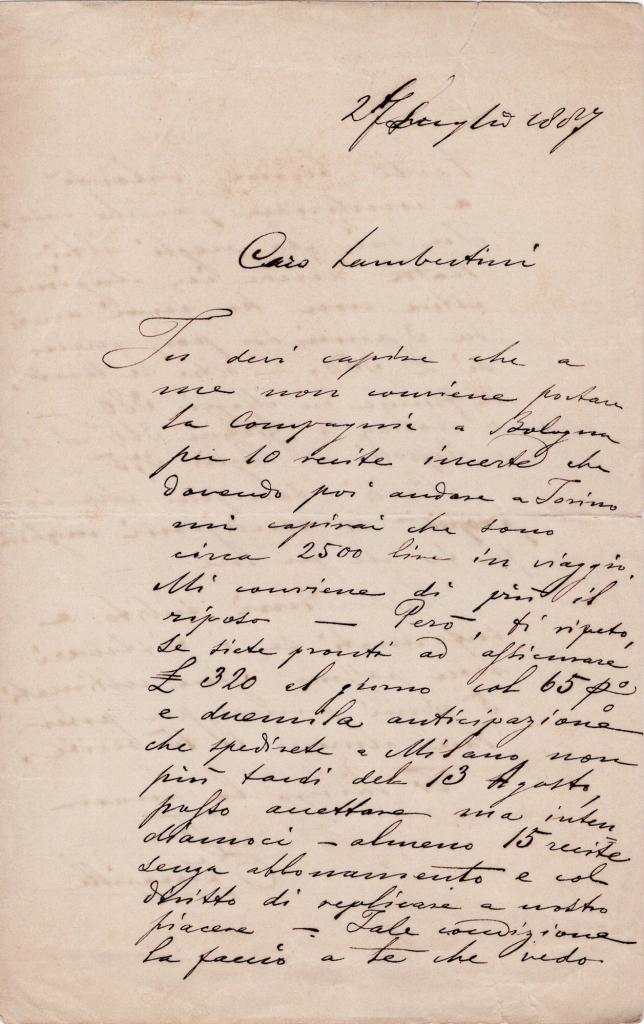 27 Luglio 1887
Caro Lambertini
Tu devi capire che a
me non conviene portare
la Compagnia a Bologna
per 10 recite incerte che
dovendo poi andare a Torino
mi capirai che sono
circa 2500 lire in viaggio.
Mi conviene di più il
riposo — Però, ti ripeto,
se siete pronti ad assicurare
£ 320 al giorno col 65 p%
e duemila anticipazione
che spedirete a Milano non
più tardi del 13 Agosto,
posso accettare ma inten=
diamoci — almeno 15 recite
senza abbonamento e col
diritto di replicare a nostro
piacere — Tale condizione
la faccio a te che vedo